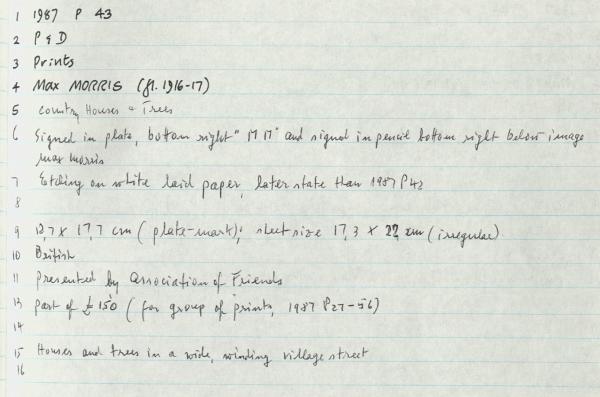 1 1987 P 43
2 P & D
3 Prints
4 Max MORRIS (fl. 1916-17)
5 Country Houses & Trees
6 Signed in plate, bottom right " M M" and signed in pencil bottom right below image
max morris
7 Etching on white laid paper, later state than 1987 P42
8
9 12,7 x 17,7 cm (plate-mark); sheet size 17,3 x 22, cm (irregular)
10 British
11 presented by Association of Friends
13 part of £150 (for group of prints, 1987 P27-56)
14
15 Houses and trees in a wide, winding village street
16